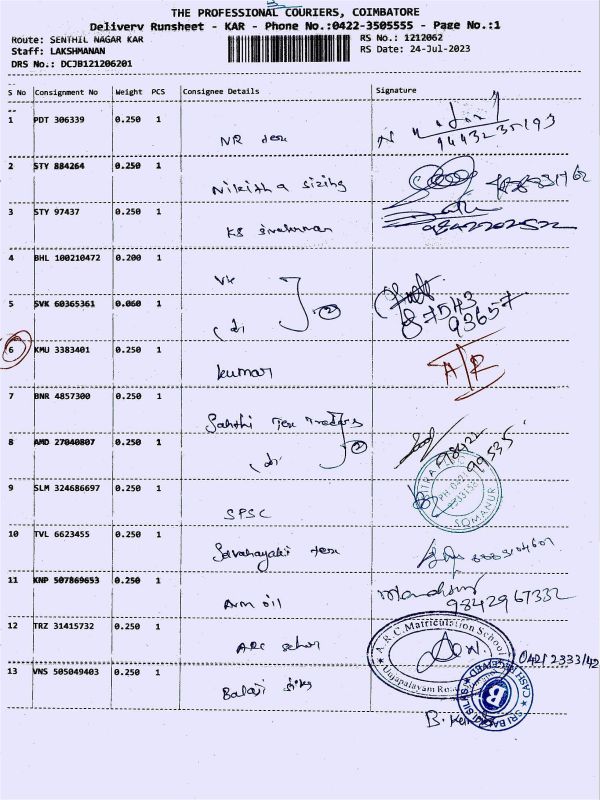 THE PROFESSIONAL COURIERS, COIMBATORE
Delivery Runsheet - KAR - Phone No.:0422-3505555 - Page No.:1
Route: SENTHIL NAGAR KAR
RS No.: 1212062
Staff: LAKSHMANAN
RS Date: 24-Jul-2023
DRS No.: DCJB121206201
S No Consignment No Weight PCS Consignee Details Signature
1 PDT 306339 0.250 1
NR tex
9443235193
2 STY 884264 0.250 1
Nikitha sizing
3 STY 97437 0.250 1
KS sivakumar
4 BHL 100210472 0.200 1
VK
5 SVK 60365361 0.060 1
(di 2
87543
93657
6 KMU 3383401 0.250 1
kumar
A/R
7 BNR 4857300 0.250 1
Sakthi Tex Traders
8 AMD 27040807 0.250 1
(di 2
98422
99535
9 SLM 324686697 0.250 1
SPSC
SOMANUR
10 TVL 6623455 0.250 1
tex
11 KNP 507869653 0.250 1
Arm oil
9842967332
12 TRZ 31415732 0.250 1
ARC school
A.R.C. Matriculation School
0421 2333142
13 VNS 505049403 0.250 1
Balaji silks
CASH RECEIVED
SRI BALAJI SILKS
B.